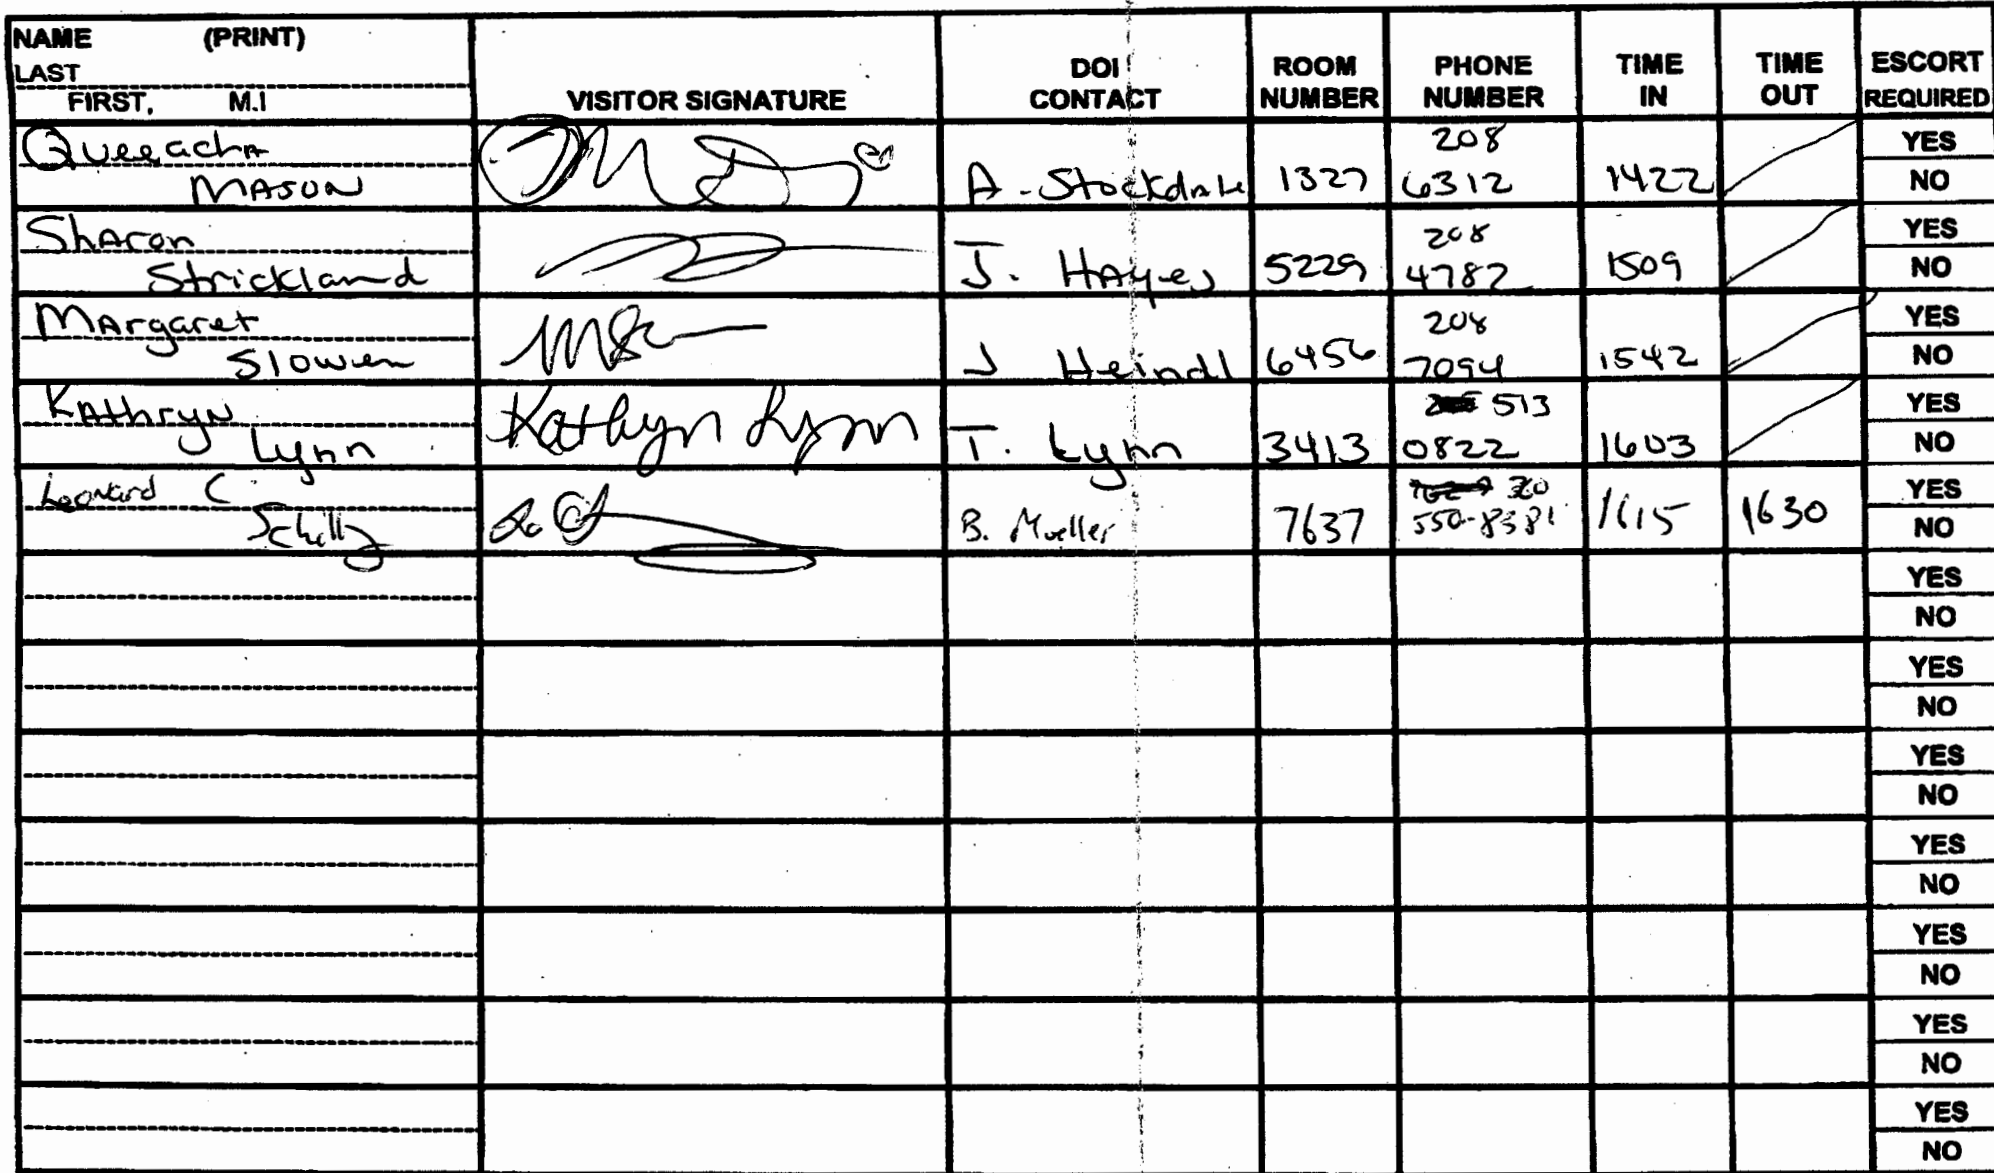 NAME (PRINT)
LAST
FIRST, M.I
VISITOR SIGNATURE
DOI CONTACT
ROOM NUMBER
PHONE NUMBER
TIME IN
TIME OUT
ESCORT REQUIRED
Queeacha
MASON
A. Stockdale 1327 208 6312 1422 YES NO
Sharon
Strickland
J. Hayes 5229 208 4782 1509 YES NO
Margaret
Slowen
J Heindl 6456 208 7094 1542 YES NO
Kathryn
Lynn
Kathryn Lynn T. Lynn 3413 513 0822 1603 YES NO
Leonard C.
B. Mueller 7637 550-8381 1615 1630 YES NO
YES
NO
YES
NO
YES
NO
YES
NO
YES
NO
YES
NO
YES
NO